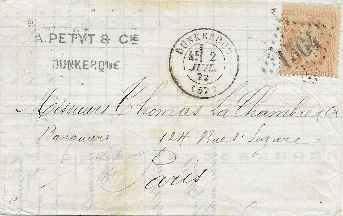 A. PETYT & CIE
DUNKERQUE
DUNKERQUE
2
(57)
1464
Messieurs Thomas La Chambre & Cie
Banquiers 124 Rue St Lazare
Paris